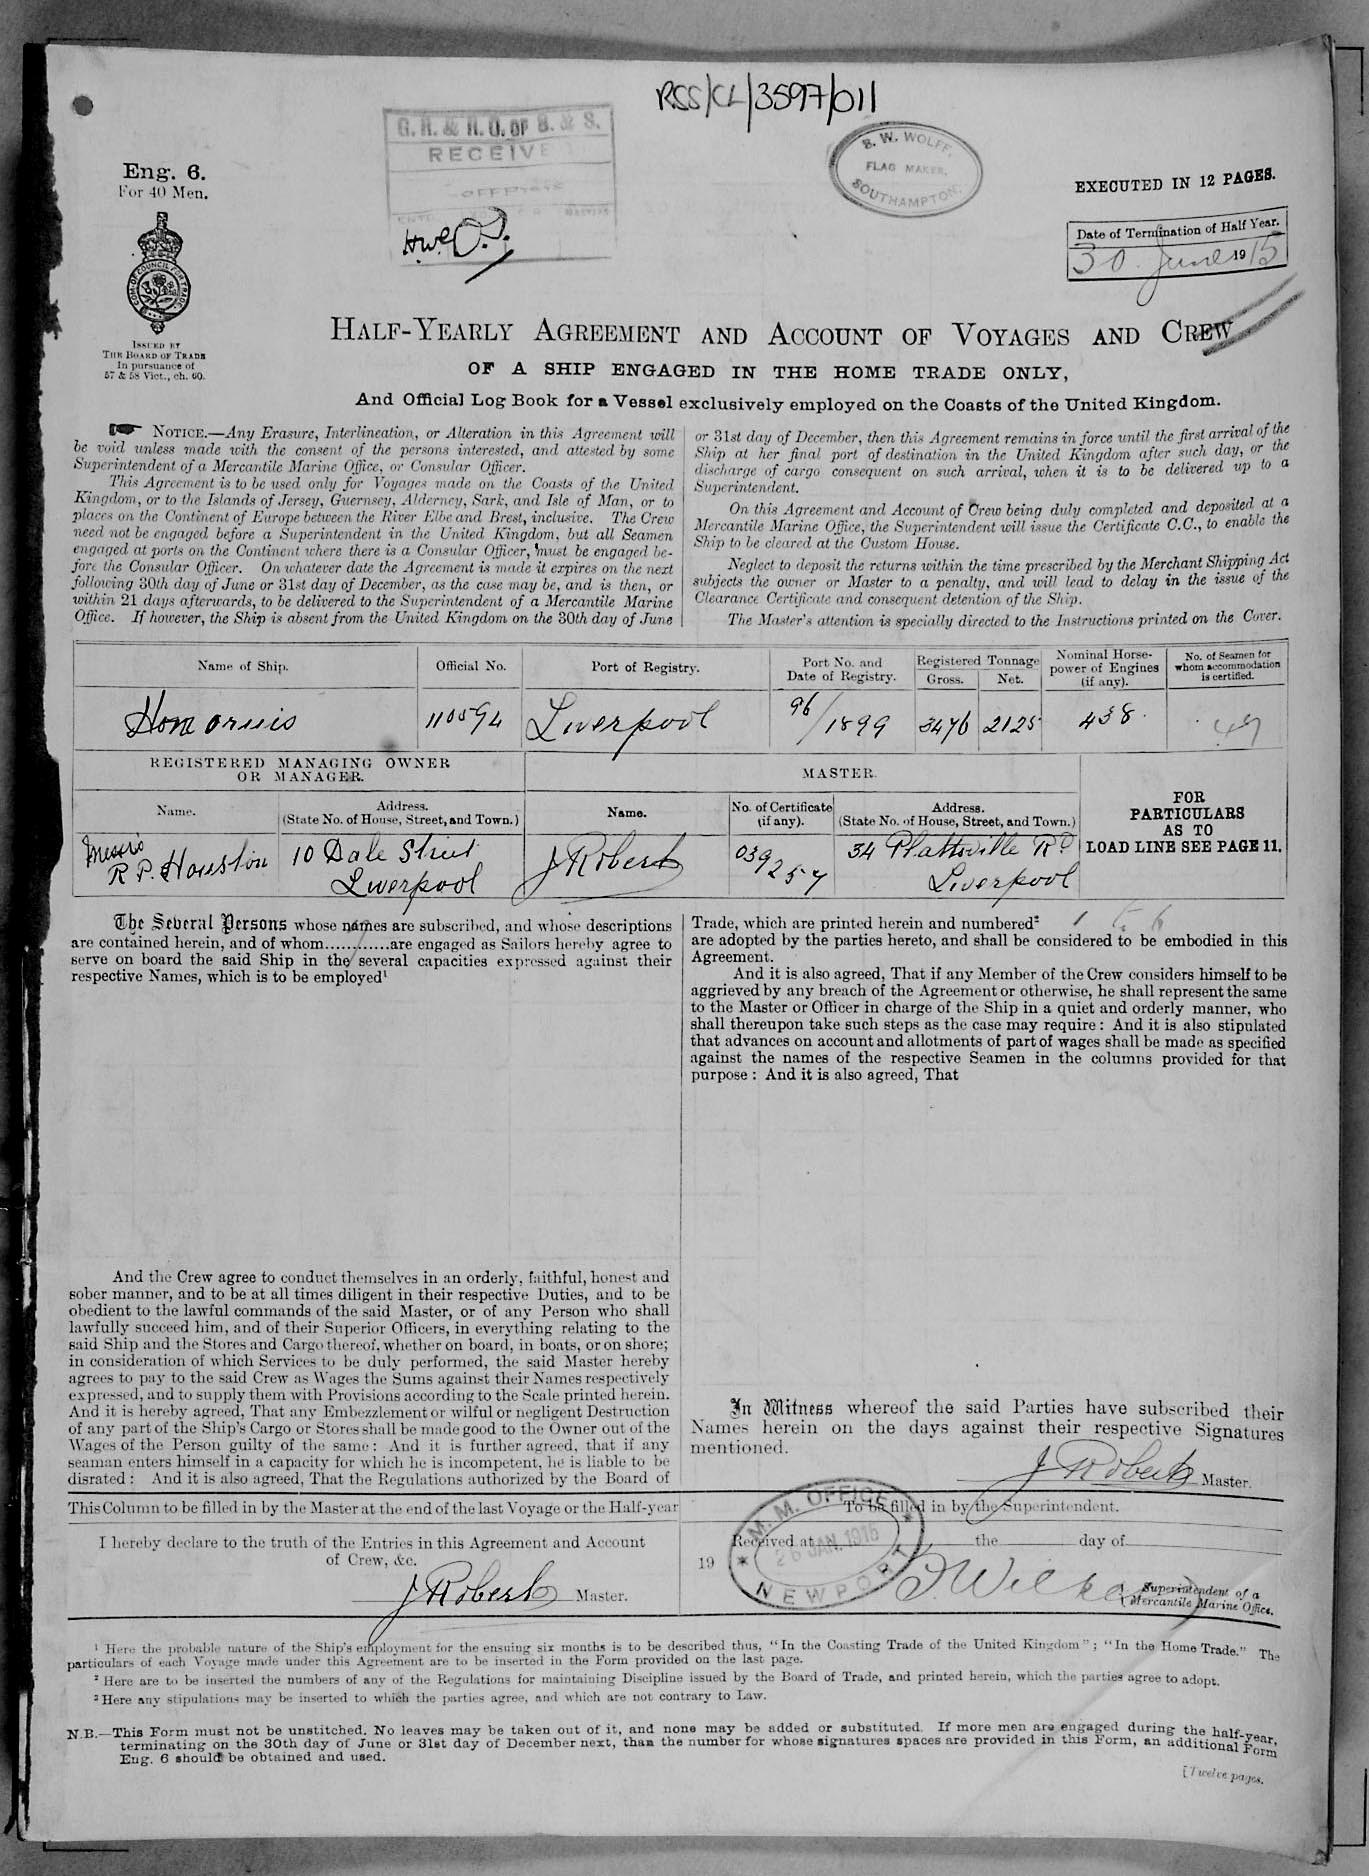 RSS/CL/3597/011
G. R. & R. O. OF S. & S.
RECEIVE
S. W. WOLFF,
FLAG MAKER,
SOUTHAMPTON.
Eng. 6.
For 40 Men.
EXECUTED IN 12 PAGES.
Date of Termination of Half Year.
30 June 1915
COM. OF COUNCIL FOR TRADE
ISSUED BY
THE BOARD OF TRADE
In pursuance of
57 & 58 Vict., ch. 60.
HALF-YEARLY AGREEMENT AND ACCOUNT OF VOYAGES AND CREW
OF A SHIP ENGAGED IN THE HOME TRADE ONLY,
And Official Log Book for a Vessel exclusively employed on the Coasts of the United Kingdom.
NOTICE.—Any Erasure, Interlineation, or Alteration in this Agreement will
be void unless made with the consent of the persons interested, and attested by some
Superintendent of a Mercantile Marine Office, or Consular Officer.
This Agreement is to be used only for Voyages made on the Coasts of the United
Kingdom, or to the Islands of Jersey, Guernsey, Alderney, Sark, and Isle of Man, or to
places on the Continent of Europe between the River Elbe and Brest, inclusive. The Crew
need not be engaged before a Superintendent in the United Kingdom, but all Seamen
engaged at ports on the Continent where there is a Consular Officer, must be engaged be-
fore the Consular Officer. On whatever date the Agreement is made it expires on the next
following 30th day of June or 31st day of December, as the case may be, and is then, or
within 21 days afterwards, to be delivered to the Superintendent of a Mercantile Marine
Office. If however, the Ship is absent from the United Kingdom on the 30th day of June
or 31st day of December, then this Agreement remains in force until the first arrival of the
Ship at her final port of destination in the United Kingdom after such day, or the
discharge of cargo consequent on such arrival, when it is to be delivered up to a
Superintendent.
On this Agreement and Account of Crew being duly completed and deposited at a
Mercantile Marine Office, the Superintendent will issue the Certificate C.C., to enable the
Ship to be cleared at the Custom House.
Neglect to deposit the returns within the time prescribed by the Merchant Shipping Act
subjects the owner or Master to a penalty, and will lead to delay in the issue of the
Clearance Certificate and consequent detention of the Ship.
The Master's attention is specially directed to the Instructions printed on the Cover.
Name of Ship. Official No. Port of Registry. Port No. and Date of Registry. Registered Tonnage Gross. Net. Nominal Horse-power of Engines (if any). No. of Seamen for whom accommodation is certified.
Honorius 110594 Liverpool 96/1899 3476 2125 438 49
REGISTERED MANAGING OWNER
OR MANAGER.
MASTER.
Name. Address. (State No. of House, Street, and Town.) Name. No. of Certificate (if any). Address. (State No. of House, Street, and Town.)
FOR
PARTICULARS
AS TO
LOAD LINE SEE PAGE 11.
Messrs R. P. Houston 10 Dale Street Liverpool J Roberts 039257 34 Plattsville Rd Liverpool
The Several Persons whose names are subscribed, and whose descriptions
are contained herein, and of whom............are engaged as Sailors hereby agree to
serve on board the said Ship in the several capacities expressed against their
respective Names, which is to be employed¹
And the Crew agree to conduct themselves in an orderly, faithful, honest and
sober manner, and to be at all times diligent in their respective Duties, and to be
obedient to the lawful commands of the said Master, or of any Person who shall
lawfully succeed him, and of their Superior Officers, in everything relating to the
said Ship and the Stores and Cargo thereof, whether on board, in boats, or on shore;
in consideration of which Services to be duly performed, the said Master hereby
agrees to pay to the said Crew as Wages the Sums against their Names respectively
expressed, and to supply them with Provisions according to the Scale printed herein.
And it is hereby agreed, That any Embezzlement or wilful or negligent Destruction
of any part of the Ship's Cargo or Stores shall be made good to the Owner out of the
Wages of the Person guilty of the same: And it is further agreed, that if any
seaman enters himself in a capacity for which he is incompetent, he is liable to be
disrated: And it is also agreed, That the Regulations authorized by the Board of
Trade, which are printed herein and numbered² 1 to 6
are adopted by the parties hereto, and shall be considered to be embodied in this
Agreement.
And it is also agreed, That if any Member of the Crew considers himself to be
aggrieved by any breach of the Agreement or otherwise, he shall represent the same
to the Master or Officer in charge of the Ship in a quiet and orderly manner, who
shall thereupon take such steps as the case may require: And it is also stipulated
that advances on account and allotments of part of wages shall be made as specified
against the names of the respective Seamen in the columns provided for that
purpose: And it is also agreed, That
In Witness whereof the said Parties have subscribed their
Names herein on the days against their respective Signatures
mentioned.
J Roberts Master.
This Column to be filled in by the Master at the end of the last Voyage or the Half-year
I hereby declare to the truth of the Entries in this Agreement and Account
of Crew, &c.
J Roberts Master.
To be filled in by the Superintendent.
Received at the day of
19
M. M. OFFICE
26 JAN. 1915
NEWPORT
Superintendent of a
Mercantile Marine Office.
¹ Here the probable nature of the Ship's employment for the ensuing six months is to be described thus, "In the Coasting Trade of the United Kingdom"; "In the Home Trade." The
particulars of each Voyage made under this Agreement are to be inserted in the Form provided on the last page.
² Here are to be inserted the numbers of any of the Regulations for maintaining Discipline issued by the Board of Trade, and printed herein, which the parties agree to adopt.
³ Here any stipulations may be inserted to which the parties agree, and which are not contrary to Law.
N.B.—This Form must not be unstitched. No leaves may be taken out of it, and none may be added or substituted. If more men are engaged during the half-year,
terminating on the 30th day of June or 31st day of December next, than the number for whose signatures spaces are provided in this Form, an additional Form
Eng. 6 should be obtained and used.
[Twelve pages.